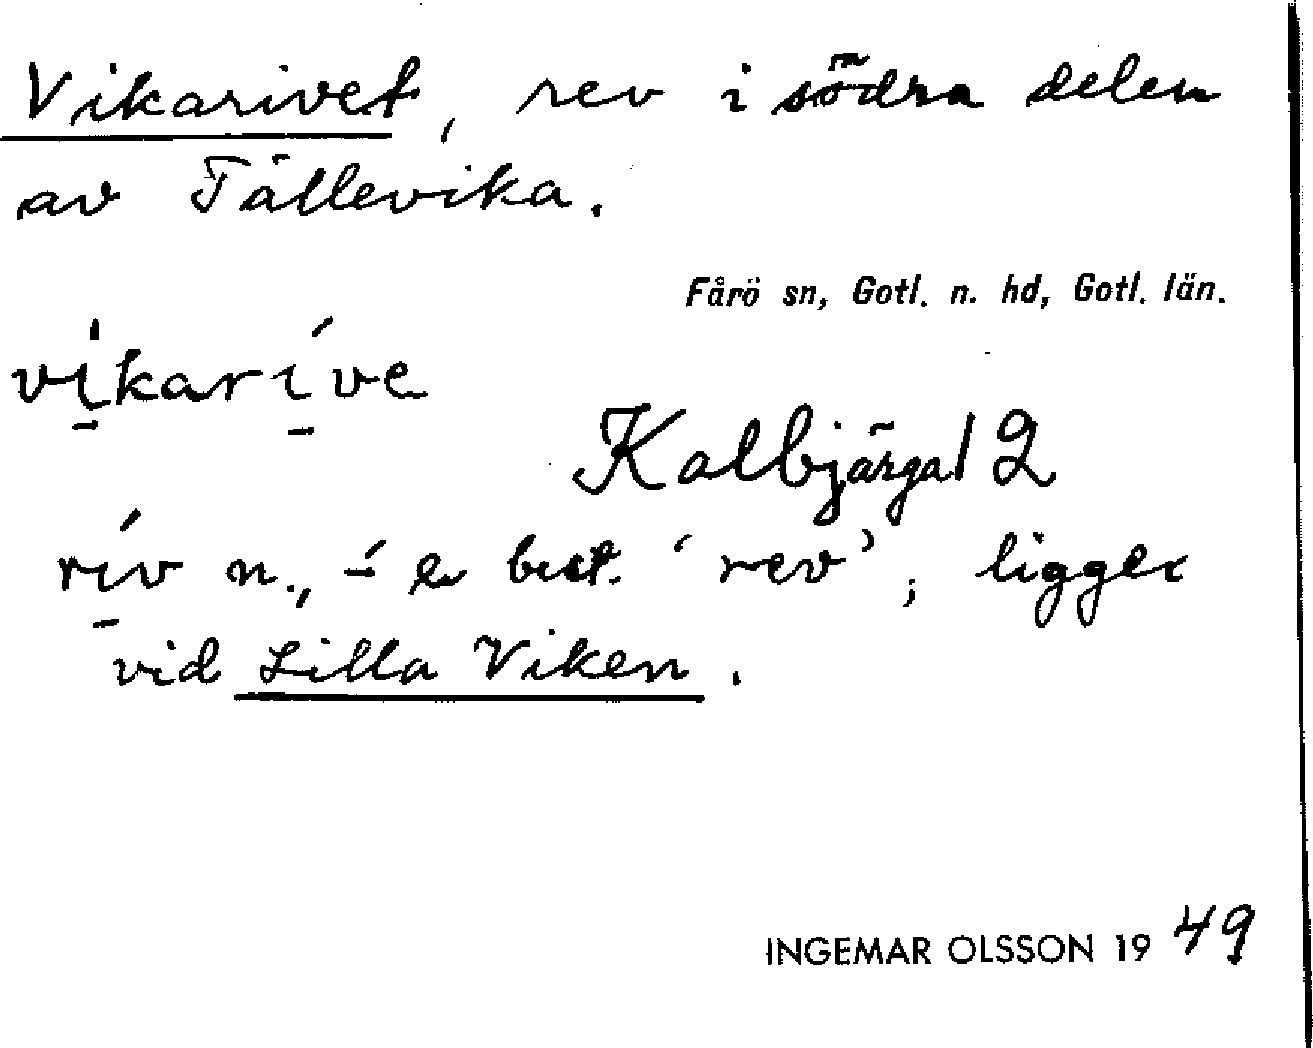 Vikarivet, rev i södra delen
av Tällevika.
Fårö sn, Gotl. n. hd, Gotl. län.
vi̱karí̱ve
Kalbjärga 1 2
rí̱v n., -́e best. ‘rev’; ligger
vid Lilla Viken.
INGEMAR OLSSON 19 49